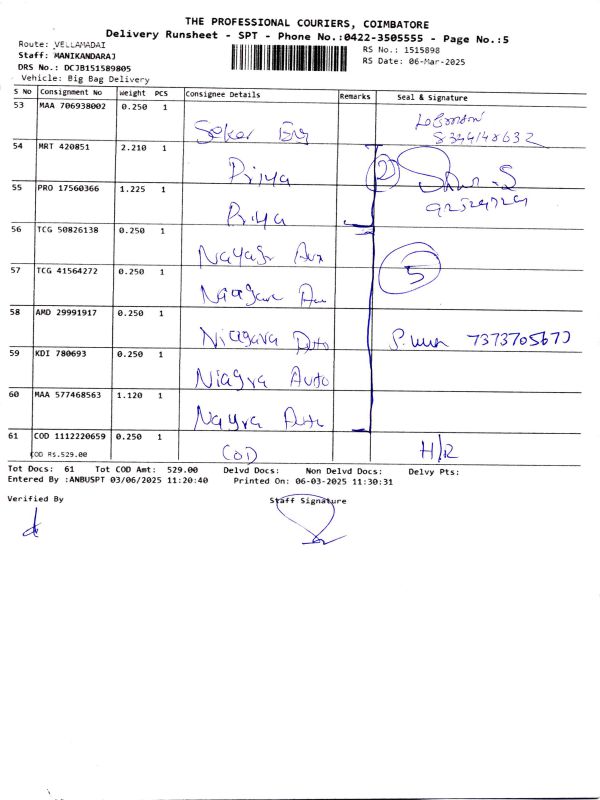 THE PROFESSIONAL COURIERS, COIMBATORE
Delivery Runsheet - SPT - Phone No.:0422-3505555 - Page No.:5
Route: VELLAMADAI
Staff: MANIKANDARAJ
DRS No.: DCJB151589805
Vehicle: Big Bag Delivery
RS No.: 1515898
RS Date: 06-Mar-2025
S No Consignment No Weight PCS Consignee Details Remarks Seal & Signature
53 MAA 706938002 0.250 1
Seker Eng
54 MRT 420851 2.210 1
Priya
2
55 PRO 17560366 1.225 1
Priya
56 TCG 50826138 0.250 1
5
57 TCG 41564272 0.250 1
58 AMD 29991917 0.250 1
Niagara Auto
7373705673
59 KDI 780693 0.250 1
Niagra Auto
60 MAA 577468563 1.120 1
Nayra Auto
61 COD 1112220659 0.250 1
COD Rs.529.00
COD
H/R
Tot Docs: 61 Tot COD Amt: 529.00 Delvd Docs: Non Delvd Docs: Delvy Pts:
Entered By :ANBUSPT 03/06/2025 11:20:40 Printed On: 06-03-2025 11:30:31
Verified By
Staff Signature